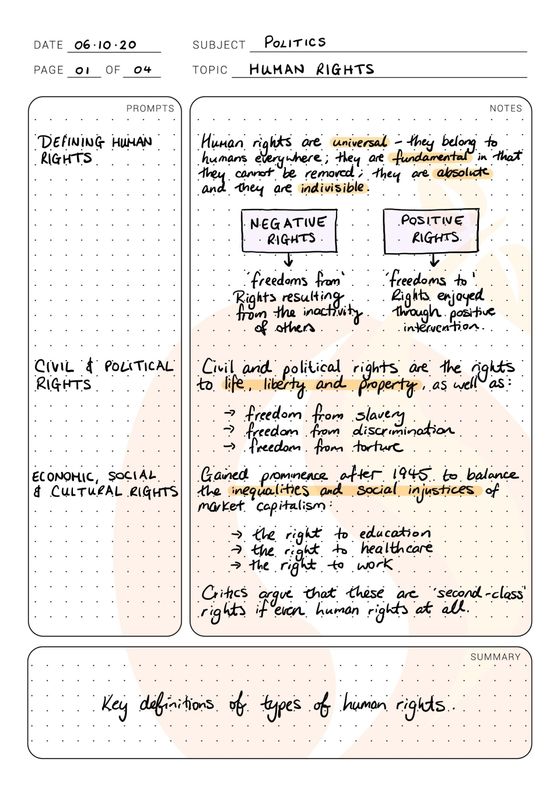 DATE 06.10.20 SUBJECT POLITICS
PAGE 01 OF 04 TOPIC HUMAN RIGHTS
PROMPTS
NOTES
DEFINING HUMAN
RIGHTS
Human rights are universal – they belong to
humans everywhere; they are fundamental in that
they cannot be removed; they are absolute
and they are indivisible.
NEGATIVE
RIGHTS
'freedoms from'
Rights resulting
from the inactivity
of others
POSITIVE
RIGHTS
'freedoms to'
Rights enjoyed
through positive
intervention.
CIVIL & POLITICAL
RIGHTS
Civil and political rights are the rights
to life, liberty and property, as well as:
→ freedom from slavery
→ freedom from discrimination
→ freedom from torture
ECONOMIC, SOCIAL
& CULTURAL RIGHTS
Gained prominence after 1945 to balance
the inequalities and social injustices of
market capitalism:
→ the right to education
→ the right to healthcare
→ the right to work
Critics argue that these are 'second-class'
rights if even human rights at all.
SUMMARY
Key definitions of types of human rights.